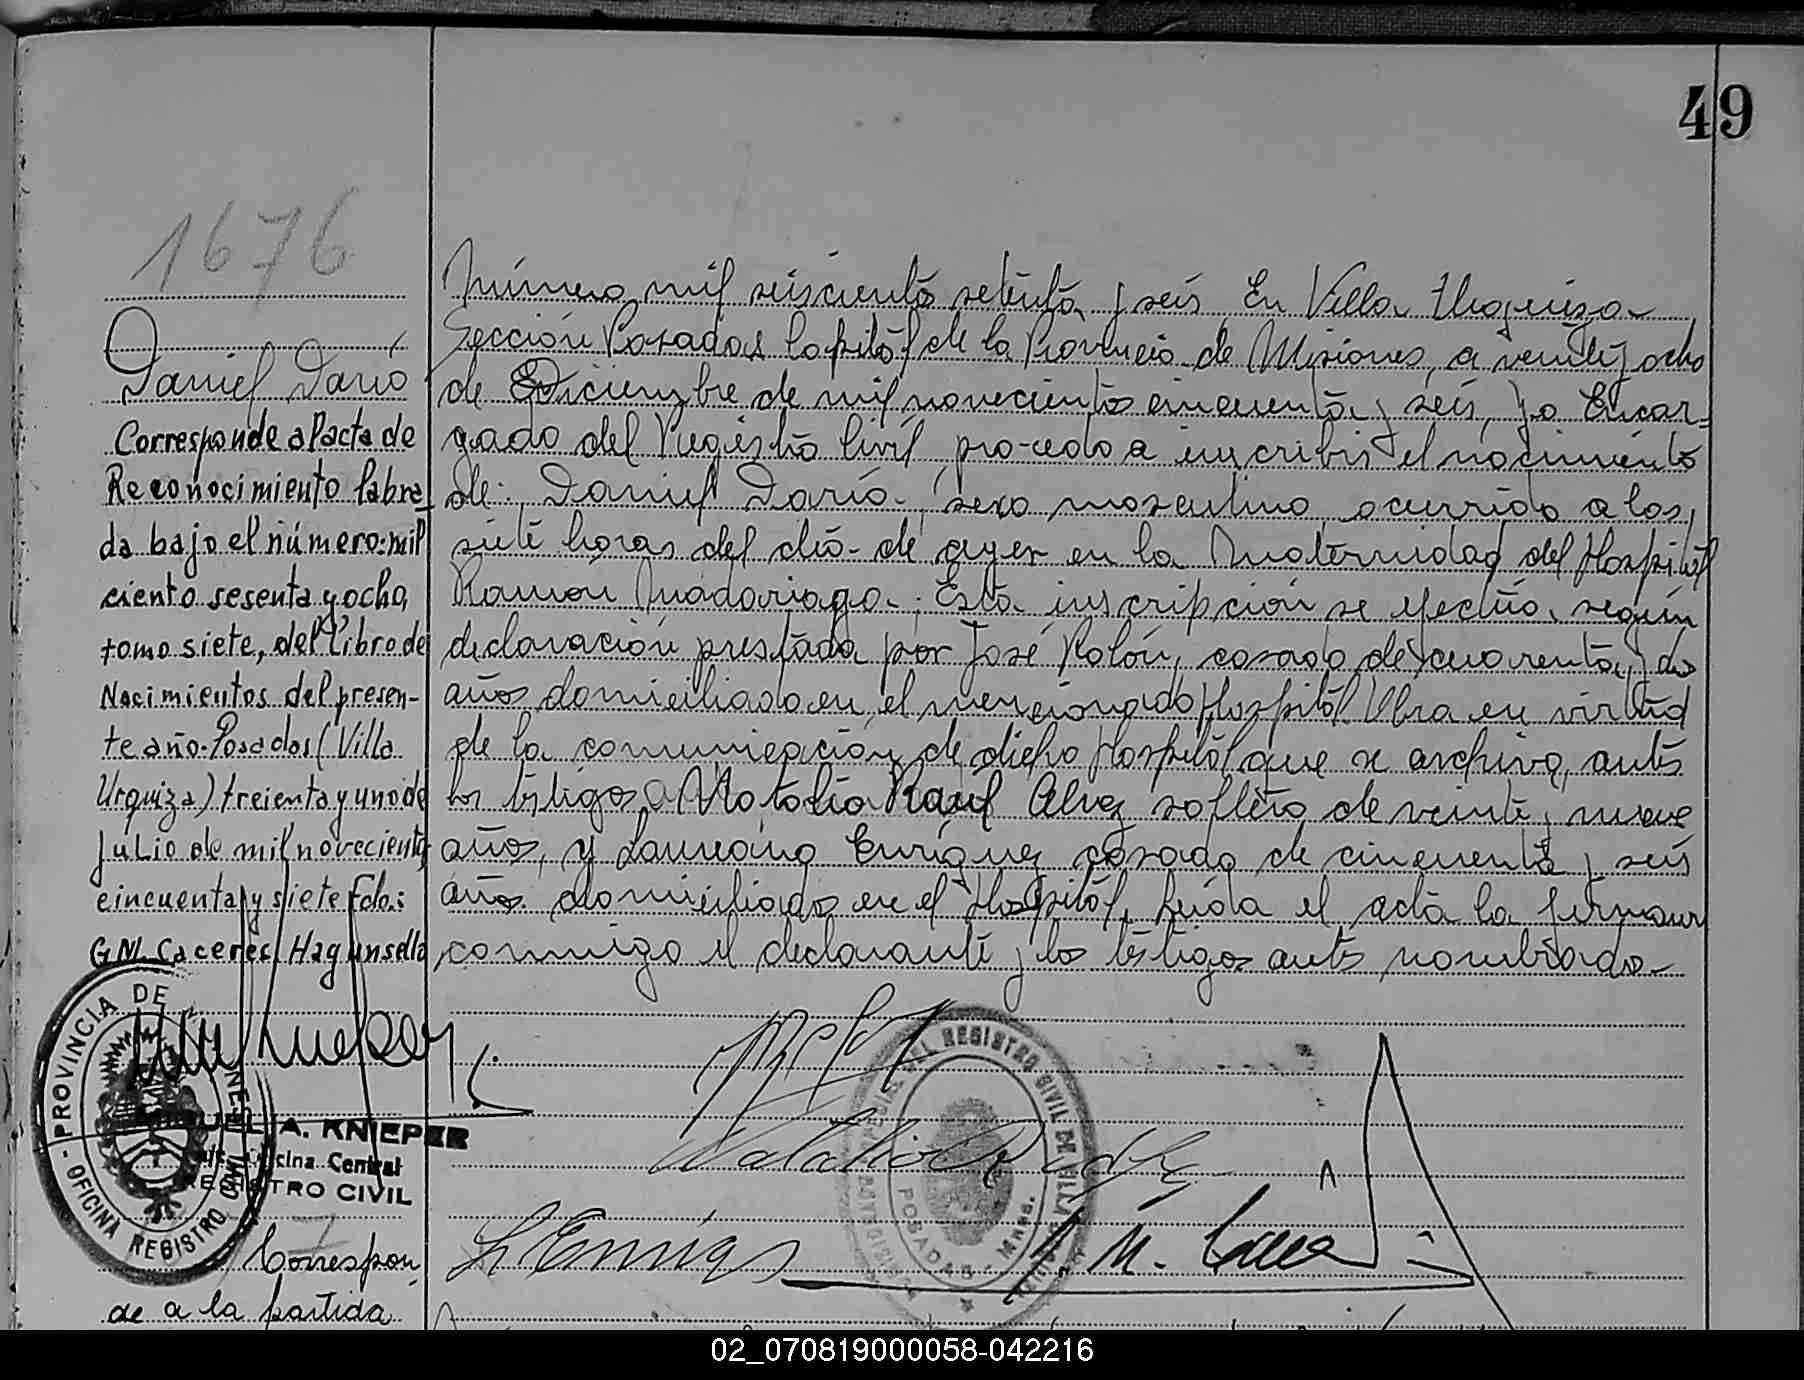 49
1676
Daniel Darío
Corresponde al acta de
Reconocimiento labra
da bajo el número: mil
ciento sesenta y ocho,
tomo siete, del Libro de
Nacimientos del presen-
te año. Posadas (Villa
Urquiza) treienta y uno de
Julio de mil novecientos
cincuenta y siete Fdo.:
G.M. Caceres. Hag
Número mil seiscientos setenta y seis En Villa Urquiza
Sección Posadas Capital de la Provincia de Misiones, a veinti y ocho
de Diciembre de mil novecientos cincuenta y seis, yo Encar=
gado del Registro Civil, procedo a inscribir el nacimiento
de: Daniel Darío-, sexo masculino ocurrido a las,
siete horas del día de ayer en la Maternidad del Hospital
Ramón Madariaga. Esta inscripción se efectúa, según
declaración prestada por José Rolón, casado de cuarenta y dos
años domiciliado en el mencionado Hospital Obra en virtud
de la comunicación de dicho Hospital que se archiva, antes
los testigos Natalio Raúl Alvez soltero de veinte y nueve
años, y Laureano Enríquez casado de cincuenta y seis
años domiciliados en el Hospital. Leída el acta la firman
conmigo el declarante y los testigos antes nombrado-
PROVINCIA DE MISIONES
OFICINA REGISTRO
A. KNIEPER
Oficina Central
REGISTRO CIVIL
REGISTRO CIVIL DE VILLA
POSADAS - Mnes.
Correspon
de a la partida
02_070819000058-042216